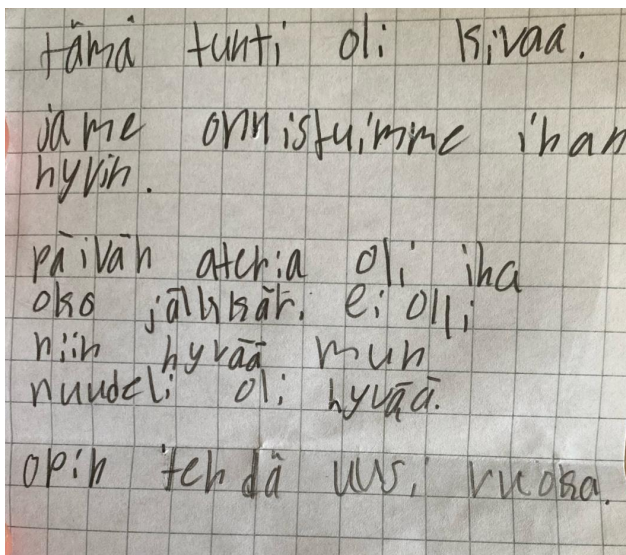 tämä tunti oli kivaa.
ja me onnistuimme ihan
hyvin.
päivän ateria oli iha
oko jälkkäri ei olli
niin hyvää mun
nuudeli oli hyvää.
opin tehdä uusi ruoka.